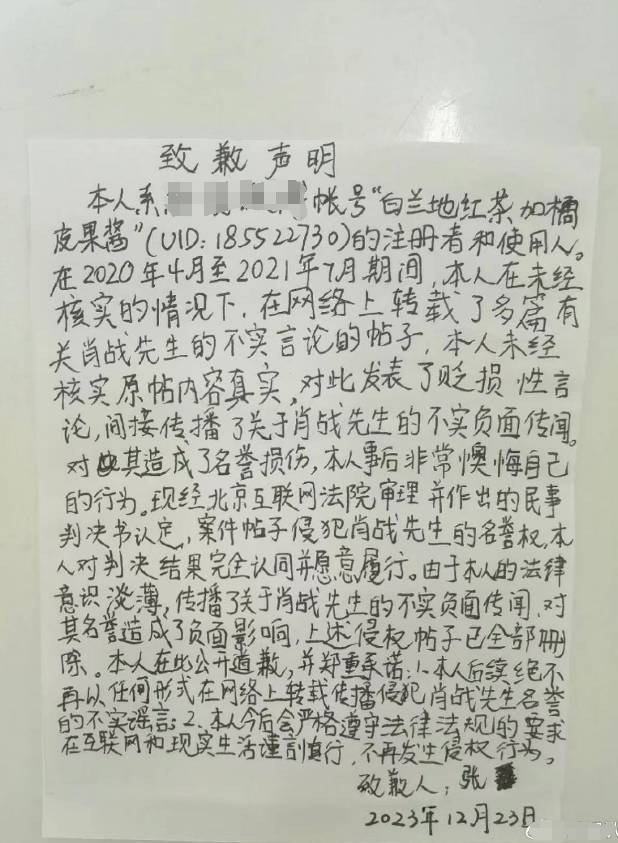 致歉声明
本人系 帐号“白兰地红茶加橘
皮果酱”(UID:185522730)的注册者和使用人。
在2020年4月至2021年7月期间,本人在未经
核实的情况下,在网络上转载了多篇有
关肖战先生的不实言论的帖子,本人未经
核实原帖内容真实,对此发表了贬损性言
论,间接传播了关于肖战先生的不实负面传闻。
对其造成了名誉损伤,本人事后非常懊悔自己
的行为。现经北京互联网法院审理并作出的民事
判决书认定,案件帖子侵犯肖战先生的名誉权,本
人对判决结果完全认同并愿意履行。由于本人的法律
意识淡薄,传播了关于肖战先生的不实负面传闻,对
其名誉造成了负面影响,上述侵权帖子已全部删
除。本人在此公开道歉,并郑重承诺:1.本人后续绝不
再以任何形式在网络上转载传播侵犯肖战先生名誉
的不实谣言;2.本人今后会严格遵守法律法规的要求
在互联网和现实生活谨言慎行,不再发生侵权行为。
致歉人:张
2023年12月23日